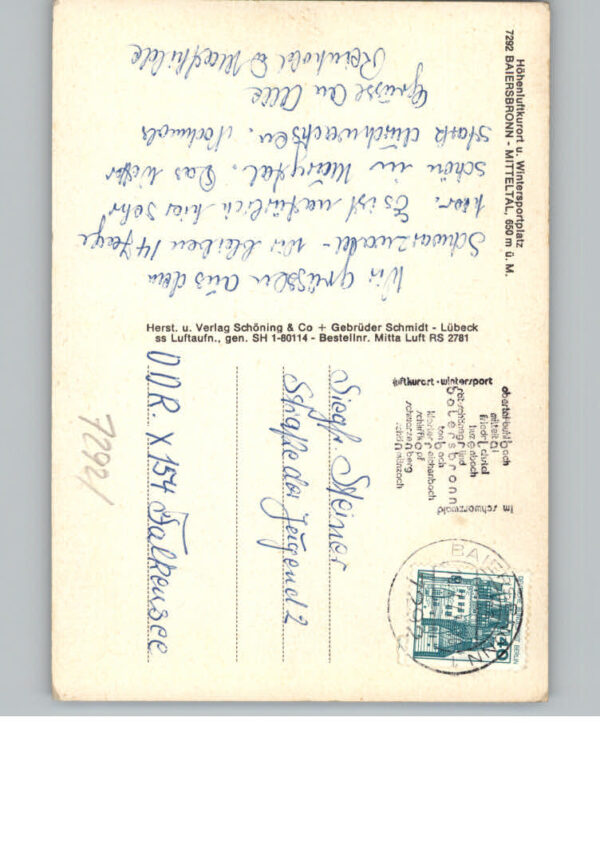 Höhenluftkurort u. Wintersportplatz
7292 BAIERSBRONN - MITTELTAL, 650 m ü. M.
Wir grüssen aus dem
Schwarzwald - wir bleiben 14 Tage
hier. Es ist natürlich hier sehr
schön im Murgtal. Das Wetter
stark durchwachsen. Nochmals
Grüsse an Alle
Reinhold & Mathilde
Herst. u. Verlag Schöning & Co + Gebrüder Schmidt - Lübeck
ss Luftaufn., gen. SH 1-80114 - Bestellnr. Mitta Luft RS 2781
luftkurort · wintersport
obertal-buhlbach
mitteltal
friedrichstal
huzenbach
röt-schönegründ
baiersbronn
tonbach
klosterreichenbach
schliffkopf
schwarzenberg
schönmünzach
im schwarzwald
BAIERSBRONN 1
40
Siegfr. Steiner
Straße der Jugend 2
DDR. X 154 Falkensee
7292/